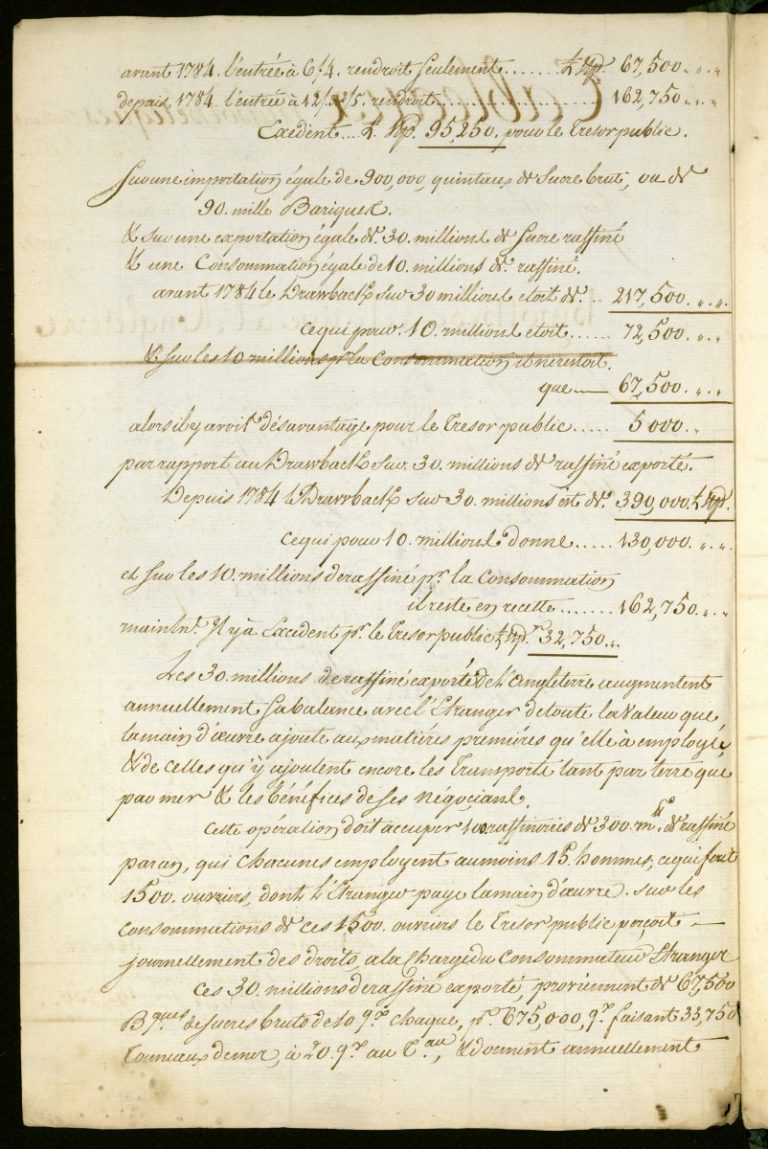 avant 1784. l'entrée à 6/4. rendroit seulement ...... 67,500. „ . „
depuis 1784. l'entrée à 12/3 2/5. rendroit .............. 162,750. „ . „
Excédent ... 95,250. pour le Tresor public.
Sur une importation égale de 900,000, quintaux de Sucre brut, ou de
90. mille Bariques.
& sur une exportation égale de. 30. millions de Sucre raffiné
& une Consommation égale de 10. millions de. raffiné.
avant 1784 le Drawback sur 30 millions etoit de. .. 217,500. „ . „
ce qui pour. 10. millions etoit ..... 72,500. „ . „
& sur les 10 millions pr. la Consommation il ne restoit
que —— 67,500. „ . „
alors il y avoit désavantage pour le Tresor public ..... 5000. „
par rapport au Drawback sur 30. millions de raffiné exporté.
Depuis 1784 le Drawback sur 30. millions est de. 390,000
ce qui pour 10. millions donne ..... 130,000. „ . „
et sur les 10. millions de raffiné pr. la Consommation
il reste en recette ....... 162,750. „ . „
maintnt. Il y a Excédent pr. le Tresor public 32,750. „
Les 30. millions de raffiné exporté de l'Angleterre augmentent
annuellement sa balance avec l'Etranger de toute la valeur que
la main d'œuvre ajoute aux matières premières qu'elle a employé,
& de celles qu'y ajoutent encore les Transports tant par terre que
par mer & les bénéfices de ses négociants.
Cette opération doit occuper 100 raffineries de 300. de raffiné
par an, qui chacunes employent au moins 15. hommes, ce qui fait
1500. ouvriers, dont l'Etranger paye la main d'œuvre. sur les
consommations de ces 1500. ouvriers le Tresor public perçoit —
journellement des droits, a la charge du Consommateur Etranger
Ces 30. millions de raffiné exporté proviennent de 67,500
Bques de sucres bruts de 10 qx. chaque, pr. 675,000, qx. faisant 33,750
Tonneaux de mer, à 20. qx. au Tau, & donnent annuellement